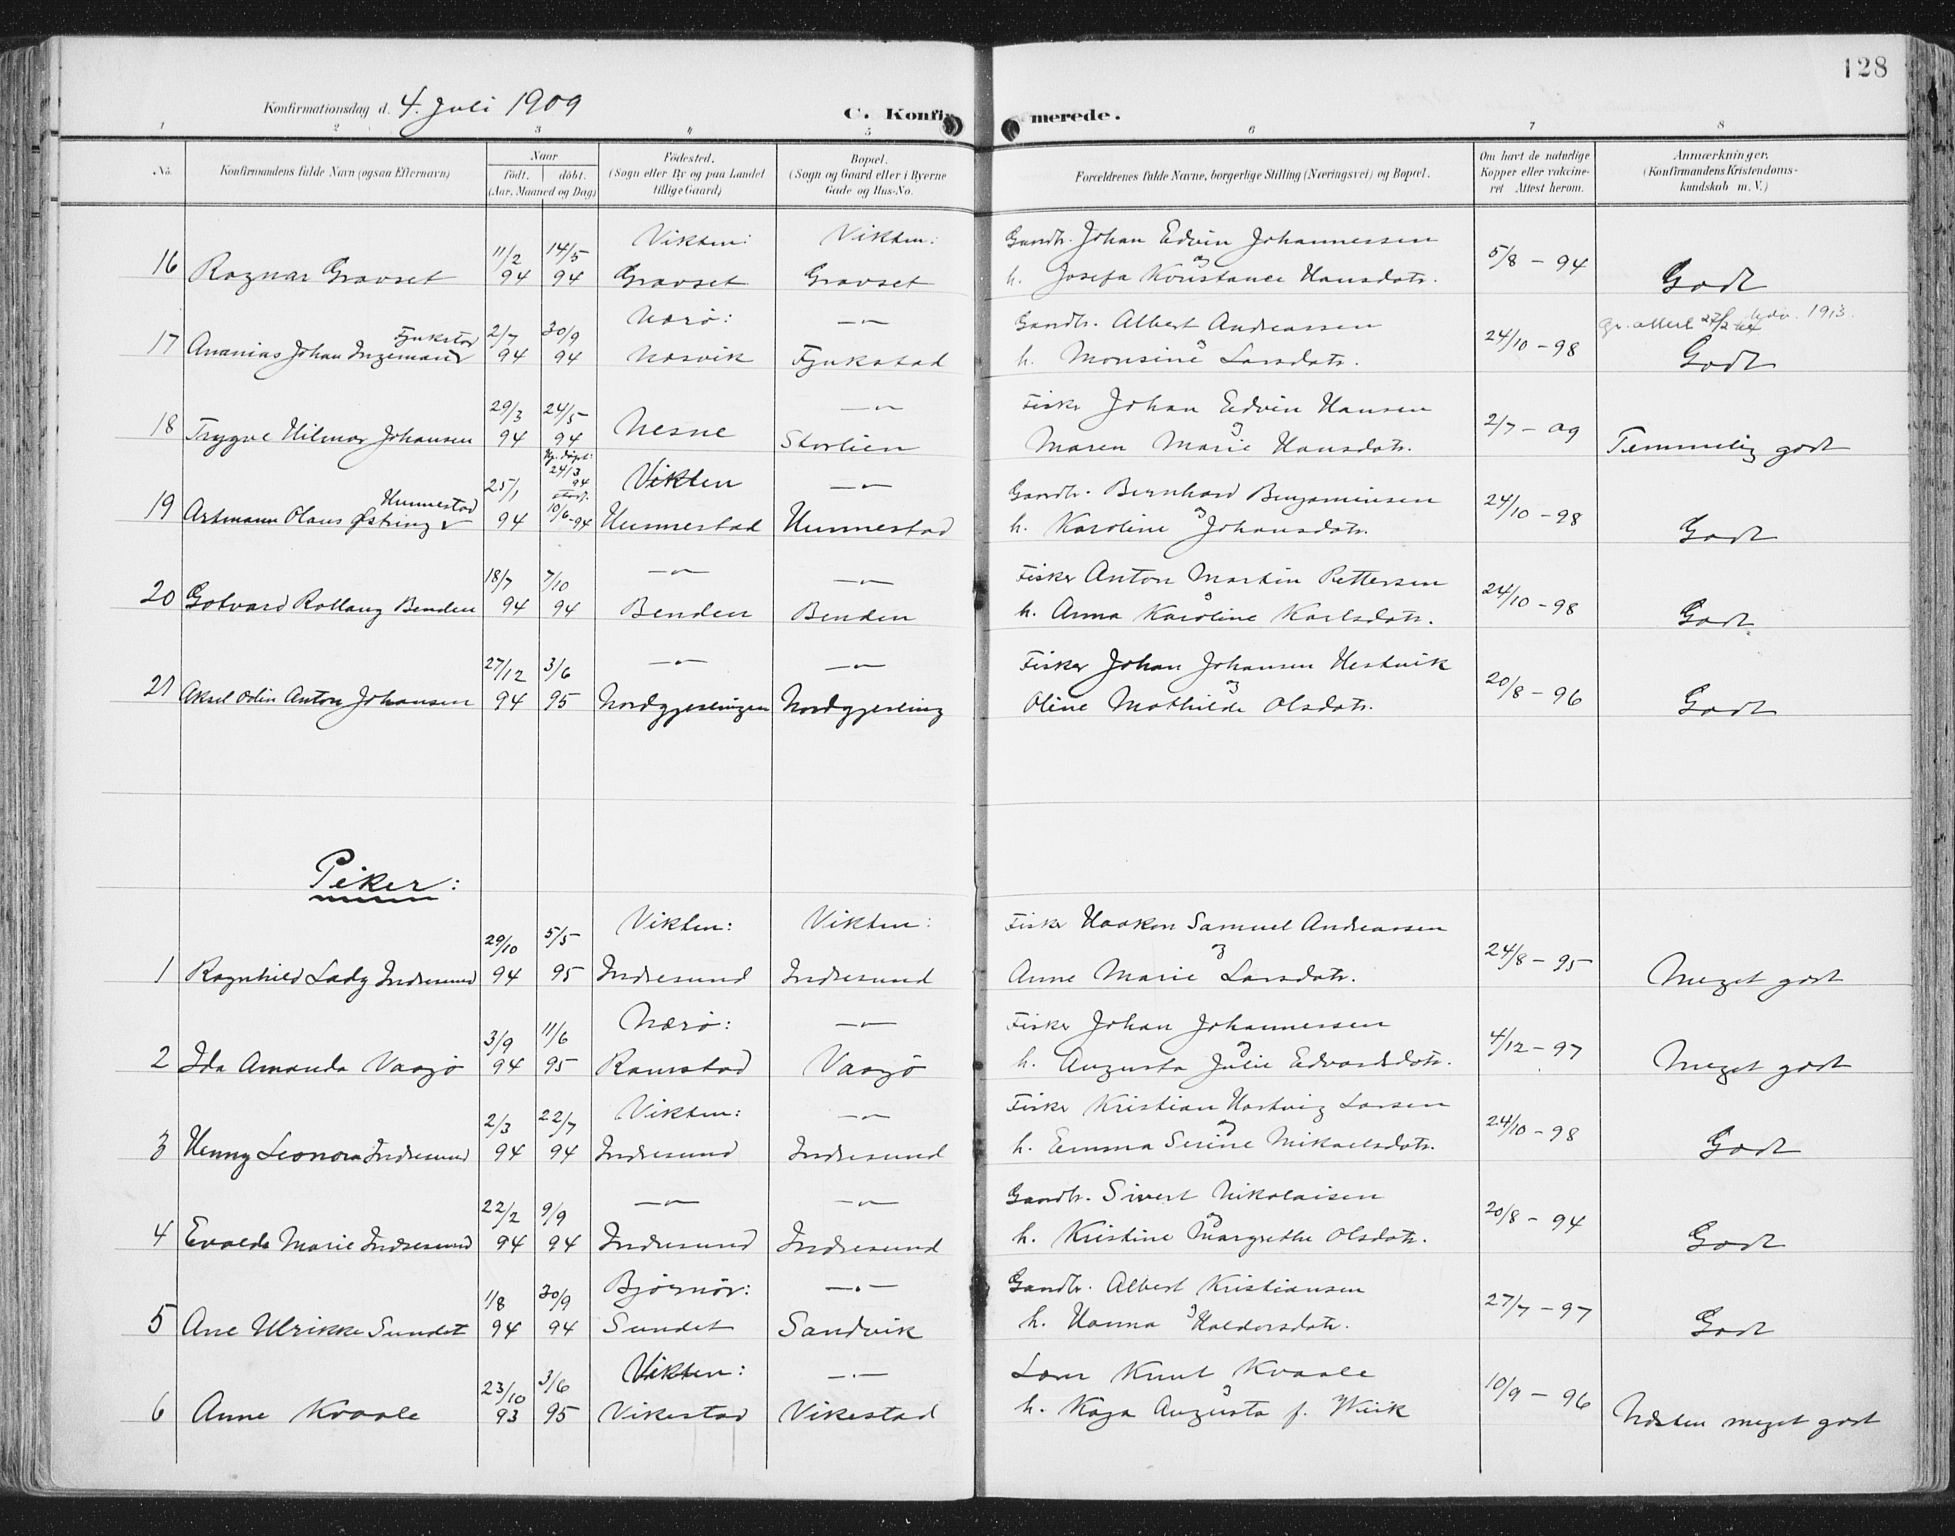 128
Konfirmationsdag d. 4. Juli 1909
C. Konfirmerede.
1 2 3 4 5 6 7 8
No.
Konfirmandens fulde Navn (ogsaa Efternavn)
Naar
födt. döbt.
(Aar, Maaned og Dag)
Födested.
(Sogn eller By og paa Landet
tillige Gaard)
Bopæl.
(Sogn og Gaard eller i Byerne
Gade og Hus-No.
Forældrenes fulde Navne, borgerlige Stilling (Næringsvei) og Bopæl.
Om havt de naturlige
Kopper eller vakcine-
ret Attest herom.
Anmærkninger.
(Konfirmandens Kristendoms-
kundskab m. V.)
11/2 14/5 Vikten: Vikten: Gaardbr. Johan Edvin Johannessen
16 Ragnar Gravset 94 94 Gravset Gravset h. Josefa Konstance Hansdatr. 5/8 - 94 Godt
Fjukstad 2/7 30/9 Nærö: —"— Gaardbr. Albert Andreassen
17 Ananias Johan Ingemann 94 94 Nosvik Fjukstad h. Monsine Larsdatr. 24/10 - 98 Godt
29/3 24/5 —"— Fisker Johan Edvin Hansen
18 Trygve Hilmar Johansen 94 94 Nesne Storlien Maren Marie Hansdatr. 2/7 - 09 Temmelig godt
Hj. döpt: 24/3 94
Hunnestad 25/1 Vikten —"— Gaardbr. Bernhard Benjaminsen
19 Artmann Olaus Østring 94 10/6-94 Hunnestad Hunnestad h. Karoline Johansdatr. 24/10 - 98 Godt
18/7 7/10 —"— —"— Fisker Anton Martin Pettersen
20 Gotvard Rollaug Benden 94 94 Benden Benden h. Anna Karoline Karlsdatr. 24/10 - 98 Godt
27/12 3/6 —"— —"— Fisker Johan Johansen Hestvik
21 Aksel Odin Anton Johansen 94 95 Nordgjeslingen Nordgjesling Oline Mathilde Olsdatr. 20/8 - 96 Godt
Piker:
29/10 5/5 Vikten: Vikten: Fisker Haakon Samuel Andreassen
1 Ragnhild Lady Indresund 94 95 Indresund Indresund Anne Marie Larsdatr. 24/8 - 95 Meget godt
3/9 11/6 Nærö: —"— Fisker Johan Johannessen
2 Ida Amanda Vaagö 94 95 Ramstad Vaagö h. Augusta Julie Edvardsdatr. 4/12 - 97 Meget godt
2/3 22/7 Vikten: —"— Fisker Kristian Hartvig Larsen
3 Henny Leonora Indresund 94 94 Indresund Indresund h. Emma Serine Mikaelsdatr. 24/10 - 98 Godt
22/2 9/9 —"— —"— Gaardbr. Sivert Nikolaisen
4 Evalda Marie Indresund 94 94 Indresund Indresund h. Kristine Margrethe Olsdatr. 20/8 - 94 Godt
1/8 30/9 Bjørnör: —"— Gaardbr. Albert Kristiansen
5 Ane Ulrikke Sundet 94 94 Sundet Sandvik h. Hanna Haldorsdatr. 27/7 - 97 Godt
23/10 3/6 Vikten: —"— Lærer Knut Kvaale
6 Anne Kvaale 93 95 Vikestad Vikestad h. Kaja Augusta f. Wiik 10/9 - 96 Næsten meget godt